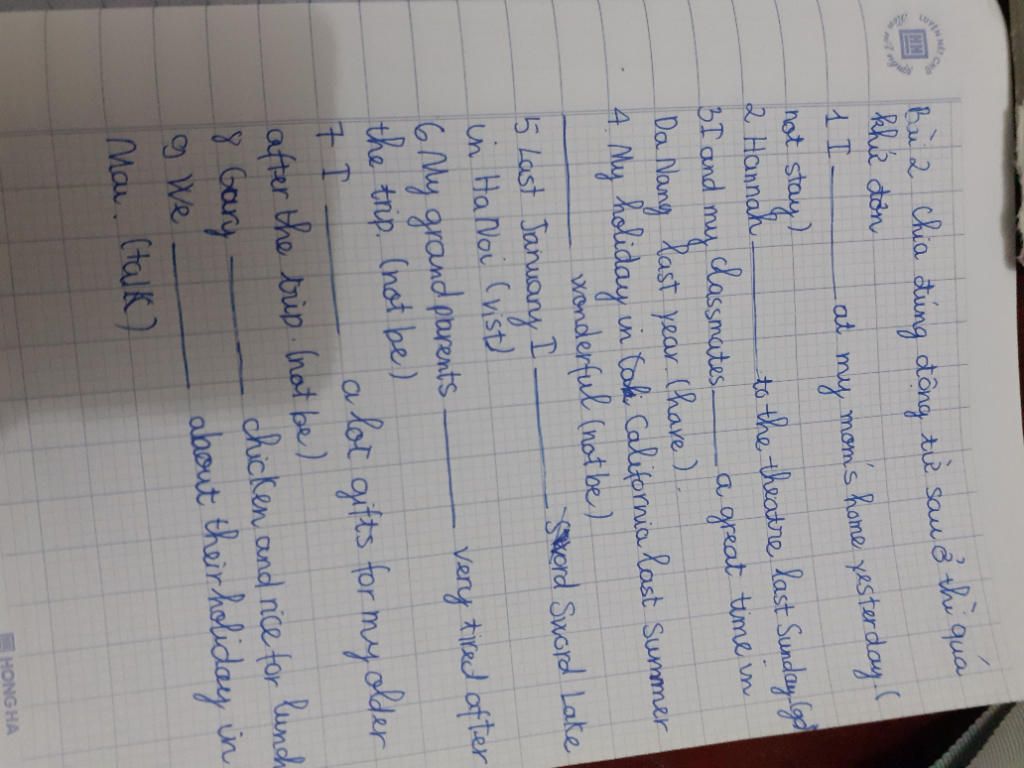 Bài 2 chia đúng động từ sau ở thì quá
khứ đơn
1 I ______ at my mom's home yesterday. (
not stay)
2 Hannah ______ to the theatre last Sunday (got
3 I and my classmates ______ a great time in
Da Nang last year. (have)
4. My holiday in Calififornia last summer
______ wonderful (not be)
5 Last January I ______ Sword Lake
in Ha Noi (vist)
6. My grandparents ______ very tired after
the trip. (not be)
7 I ______ a lot gifts for my older
after the trip. (not be)
8 Gary ______ chicken and rice for lunch
9 We ______ about their holiday in
Mai. (talk)
HONG HA